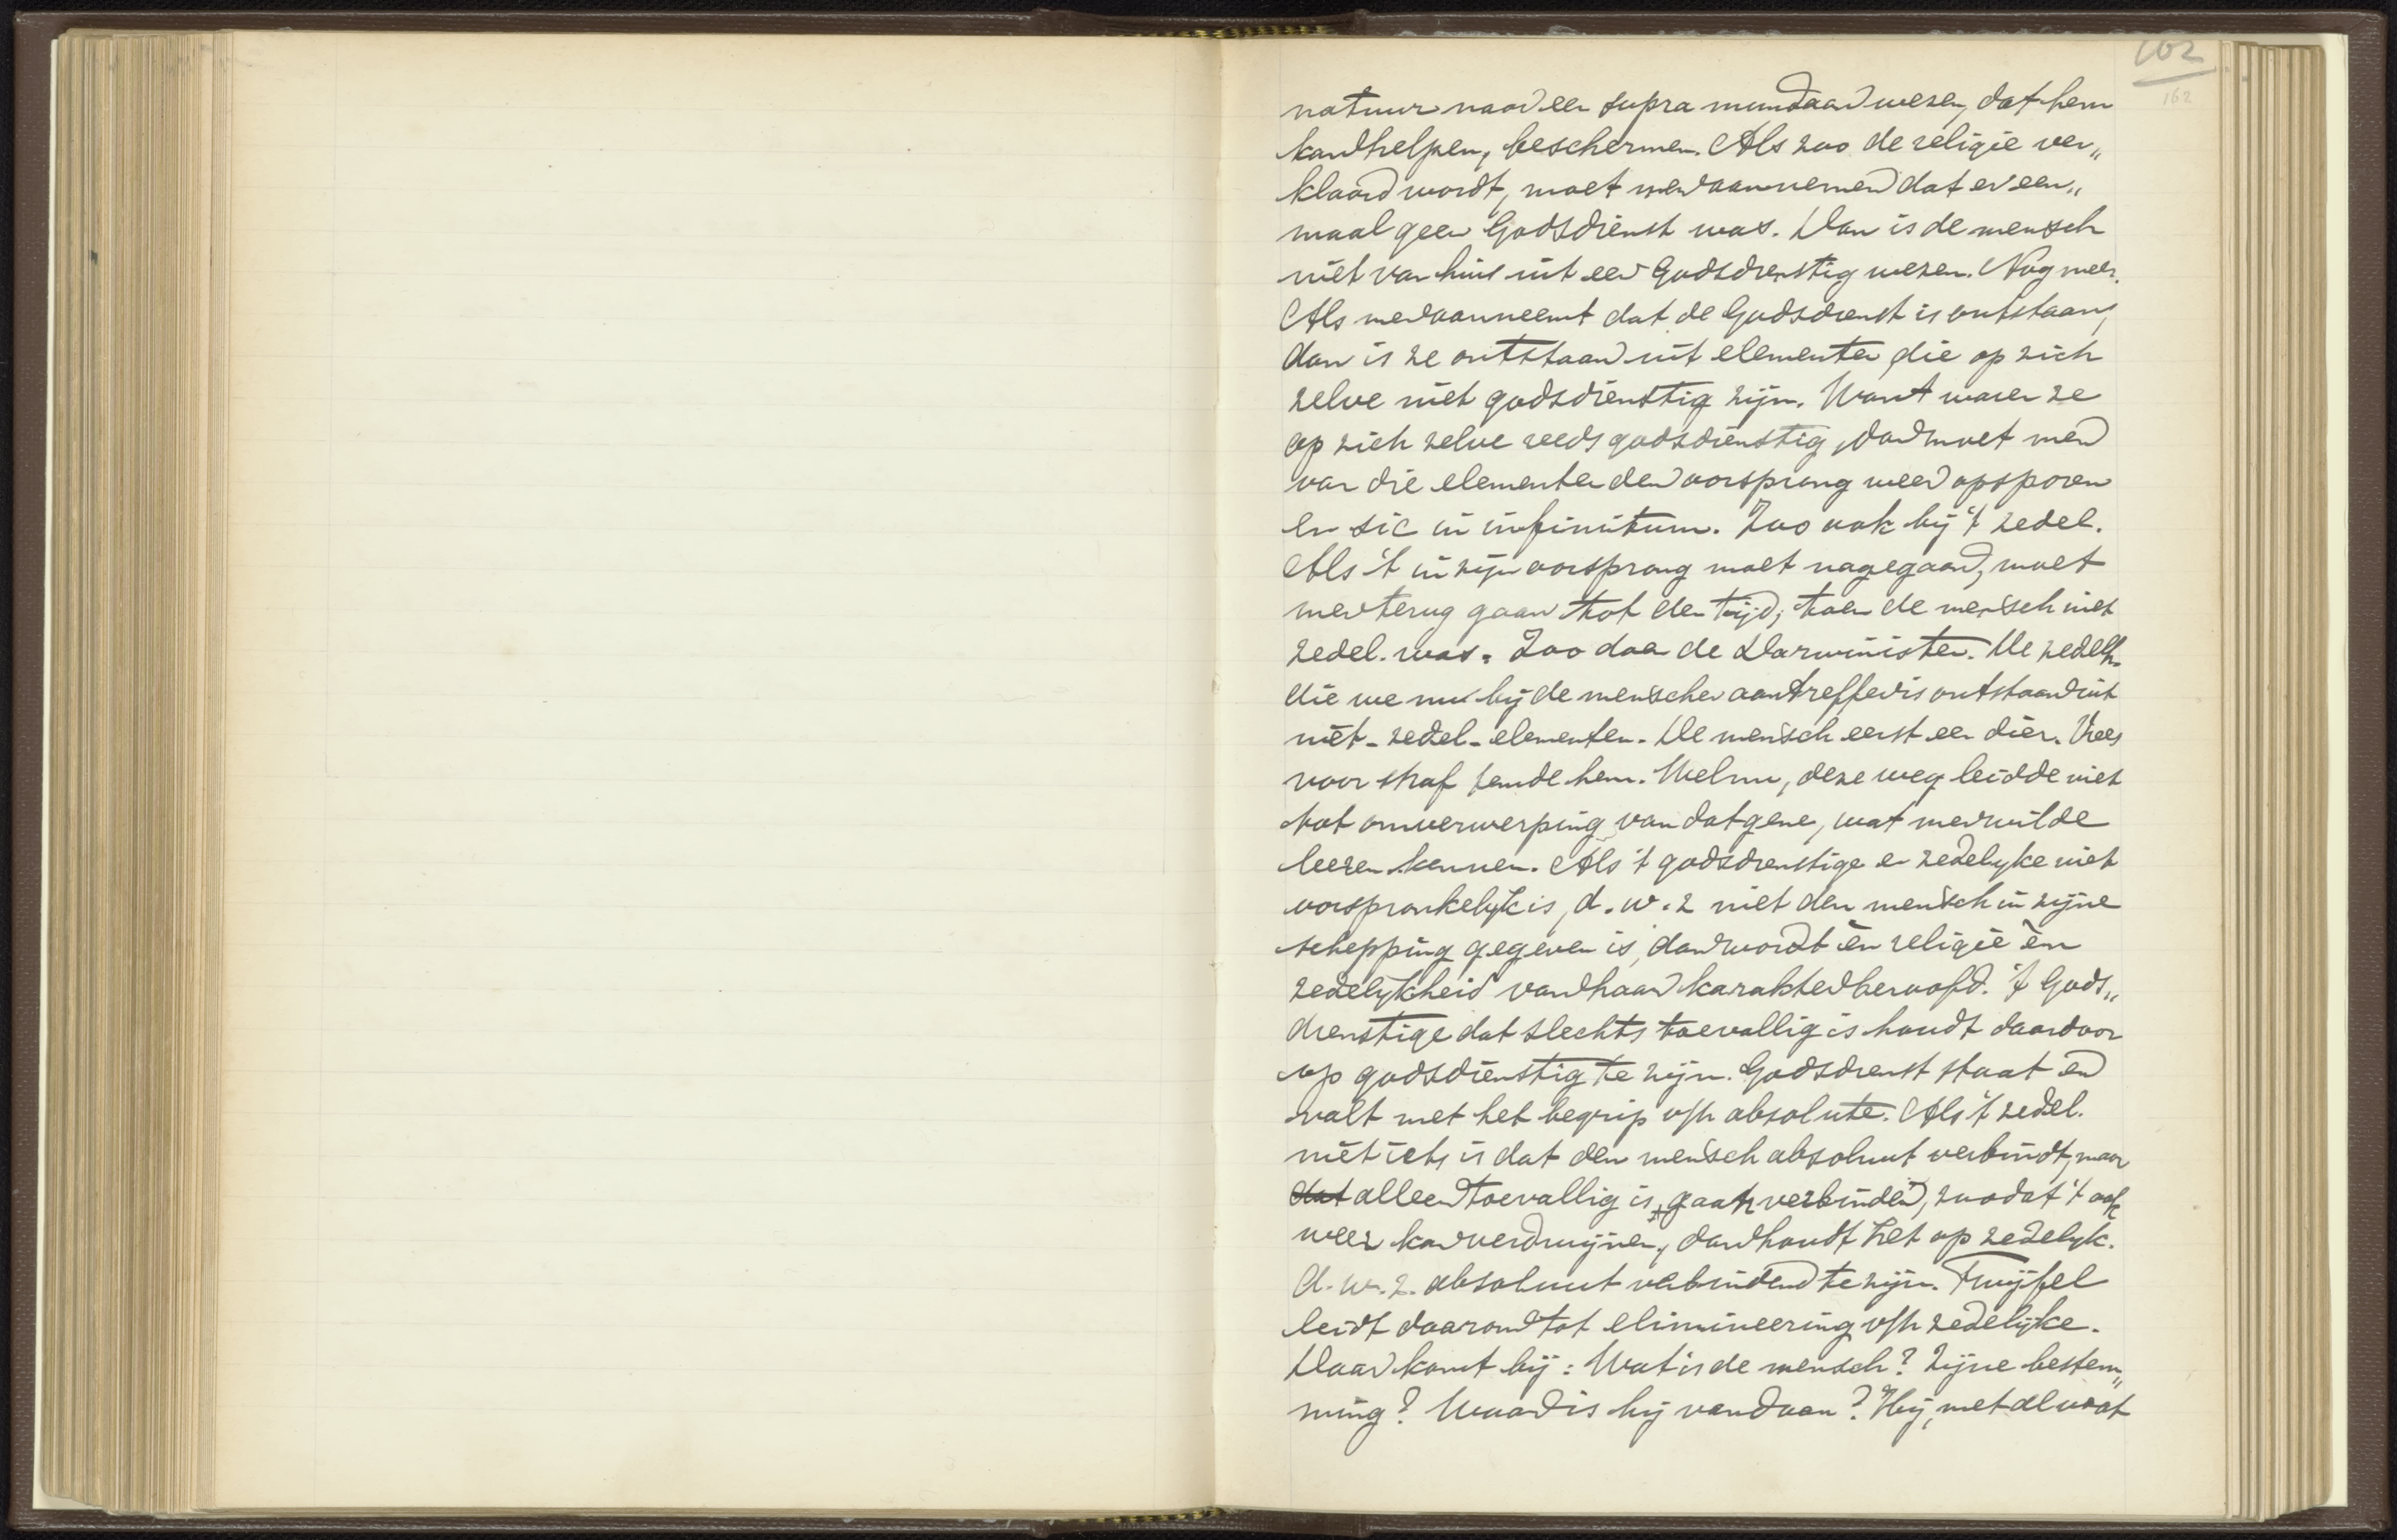 162
162
natuur naar een supra mundaan wezen, dat hem
kan helpen, beschermen. Als zoo de religie ver„
klaard wordt, moet men aannemen dat er een„
maal geen Godsdienst was. Dan is de mensch
niet van huis uit een Godsdienstig wezen. Nog meer.
Als men aanneemt dat de Godsdienst is ontstaan,
dan is ze ontstaan uit elementen, die op zich
zelve niet godsdienstig zijn. Want waren ze
op zich zelve reeds godsdienstig, dan moet men
van die elementen den oorsprong weer opsporen
en sic in infinitum. Zoo ook bij 't zedel.
Als 't in zijn oorsprong moet nagegaan, moet
men terug gaan tot den tijd, toen de mensch niet
zedel. was. Zoo doen de Darwinisten. De zedelh.
die we nu bij de menschen aantreffen is ontstaan uit
niet-zedel-elementen. De mensch eerst een dier. Vrees
voor straf temde hem. Welnu, deze weg leidde niet
tot omverwerping van datgene, wat men wilde
leeren kennen. Als 't godsdienstige en zedelyke niet
oorspronkelyk is, d.w.z niet den mensch in zijne
schepping gegeven is, dan wordt èn religie èn
zedelykheid van haar karakter beroofd. 't Gods„
dienstige dat slechts toevallig is houdt daardoor
op godsdienstig te zijn. Godsdienst staat en
valt met het begrip v/h absolute. Als 't zedel.
niet iets is dat den mensch absoluut verbindt, maar
dat alleen toevallig is, gaat verbinden, zoodat 't ook
weer kan verdwijnen, dan houdt het op zedelyk.
d.w.z. absoluut verbindend te zijn. Twijfel
leidt daarom tot elimineering v/h zedelijke.
Daar komt bij: Wat is de mensch? Zijne bestem„
ming? Waar is hij vandaan? Hij, met al wat